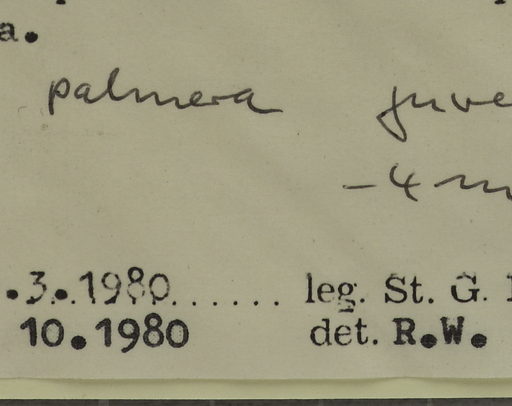 a.
palmera juve
- 4 m
.3.1980....... leg. St. G.
10.1980 det. R.W.